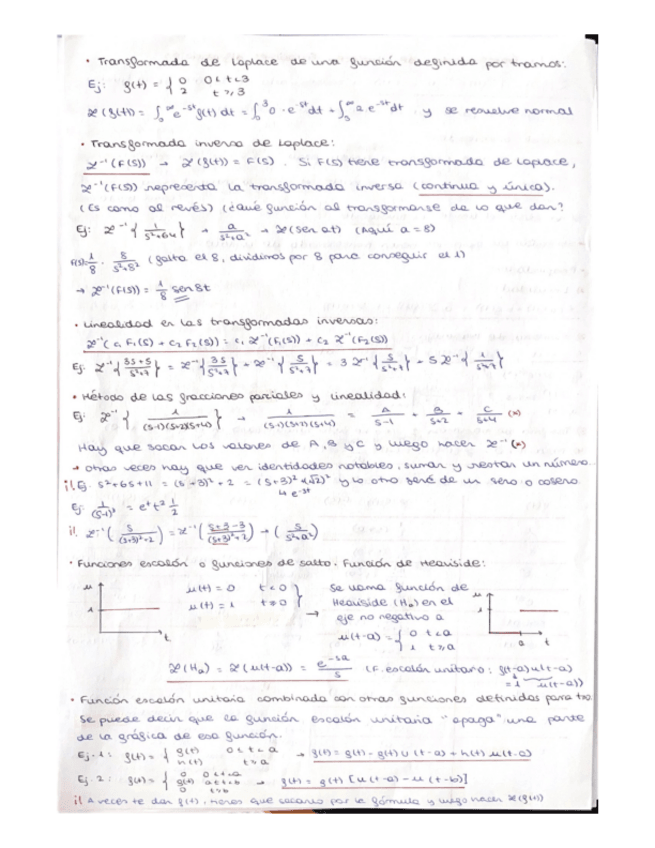 • Transformada de Laplace de una función definida por tramos:
Ej: f(t) = { 0 0<t<3
2 t≥3
ℒ(f(t)) = ∫₀^∞ e^-st f(t) dt = ∫₀^3 0 · e^-st dt + ∫₃^∞ 2 e^-st dt y se resuelve normal
• Transformada inversa de Laplace:
ℒ⁻¹(F(S)) → ℒ(f(t)) = F(S). Si F(S) tiene transformada de Laplace,
ℒ⁻¹(F(S)) representa la transformada inversa (continua y única).
(Es como al revés) (¿Qué función al transformarse da lo que dan?
Ej: ℒ⁻¹{ 1/s²+64 } → a/s²+a² → ℒ(sen at) (Aquí a = 8)
F(s): 1/8 · 8/s²+8² (falta el 8, dividimos por 8 para conseguir el 1)
→ ℒ⁻¹(F(S)) = 1/8 sen 8t
• Linealidad en las transformadas inversas:
ℒ⁻¹(c₁ F₁(S) + c₂ F₂(S)) = c₁ ℒ⁻¹(F₁(S)) + c₂ ℒ⁻¹(F₂(S))
Ej: ℒ⁻¹{ 3s+5/s²+7 } = ℒ⁻¹{ 3s/s²+7 } + ℒ⁻¹{ 5/s²+7 } = 3 ℒ⁻¹{ s/s²+7 } + 5 ℒ⁻¹{ 1/s²+7 }
• Método de las fracciones parciales y linealidad:
Ej: ℒ⁻¹{ 1/(s-1)(s+2)(s+4) } → 1/(s-1)(s+2)(s+4) = A/s-1 + B/s+2 + C/s+4 (*)
Hay que sacar los valores de A, B y C y luego hacer ℒ⁻¹(*)
→ otras veces hay que ver identidades notables, sumar y restar un número.
¡! Ej: s²+6s+11 = (s+3)²+2 = (s+3)²+(√2)² y lo otro será de un seno o coseno
↳ e^-3t
Ej: 1/(s-1)³ = e^t t² 1/2
¡!. ℒ⁻¹( s/(s+3)²+2 ) = ℒ⁻¹( s+3-3/(s+3)²+2 ) → ( s/s²+a² )
• Funciones escalón o funciones de salto. Función de Heaviside:
μ
1
t
μ(t) = 0 t<0
μ(t) = 1 t≥0 } →
Se llama función de
Heaviside (Ha) en el
eje no negativo a
μ(t-a) = { 0 t<a
1 t≥a
μ
1
a t
ℒ(Ha) = ℒ(μ(t-a)) = e^-sa/s (F. escalón unitaro: f(t-a)μ(t-a)
=1 μ(t-a))
• Función escalón unitaria combinada con otras funciones definidas para t≥0
Se puede decir que la función escalón unitaria "apaga" una parte
de la gráfica de esa función.
Ej. 1: f(t) = { g(t) 0≤t<a
h(t) t≥a → f(t) = g(t) - g(t) μ(t-a) + h(t) μ(t-a)
Ej. 2: f(t) = { 0 0≤t<a
g(t) a≤t<b
0 t≥b → f(t) = g(t) [μ(t-a) - μ(t-b)]
¡! A veces te dan f(t), tienes que sacarlo por la fórmula y luego hacer ℒ(f(t))